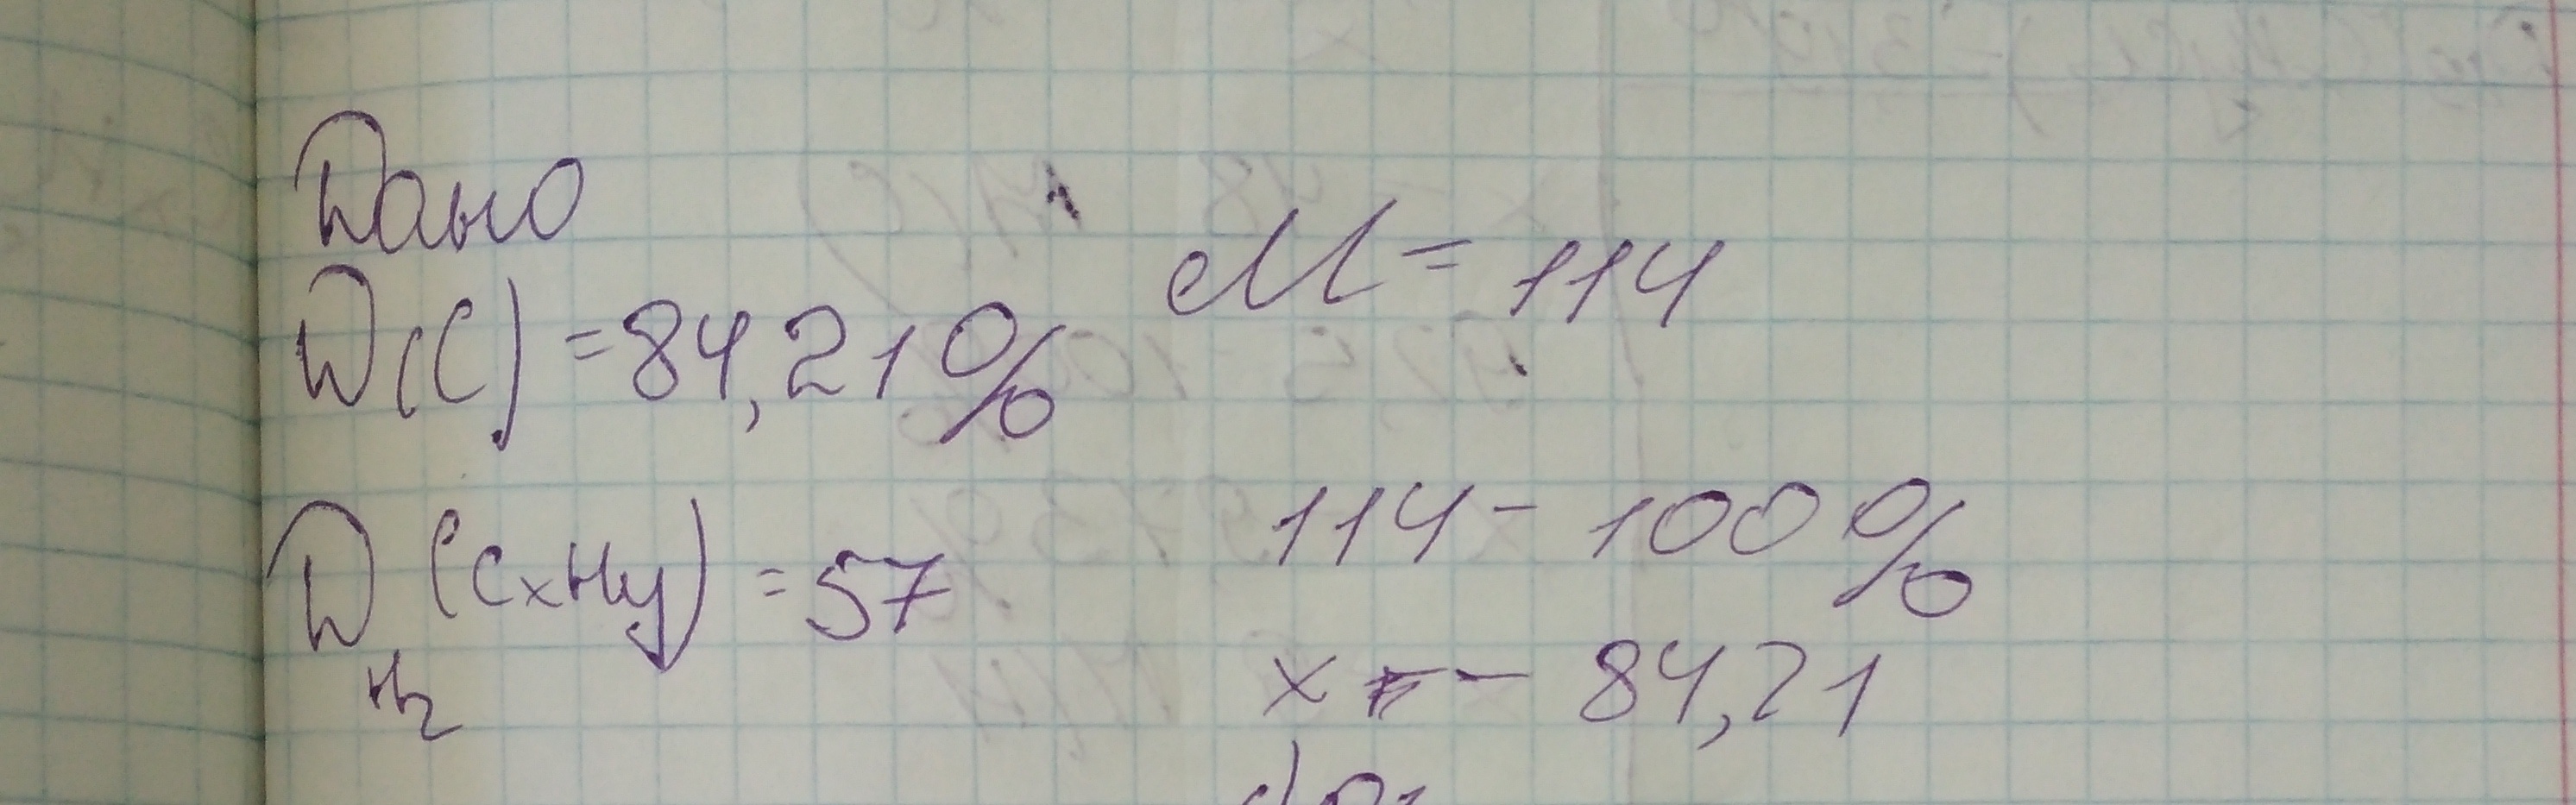 Дано
W(C) = 84,21%
D (CxHy) = 57
H2
M = 114
114 - 100%
x - 84,21